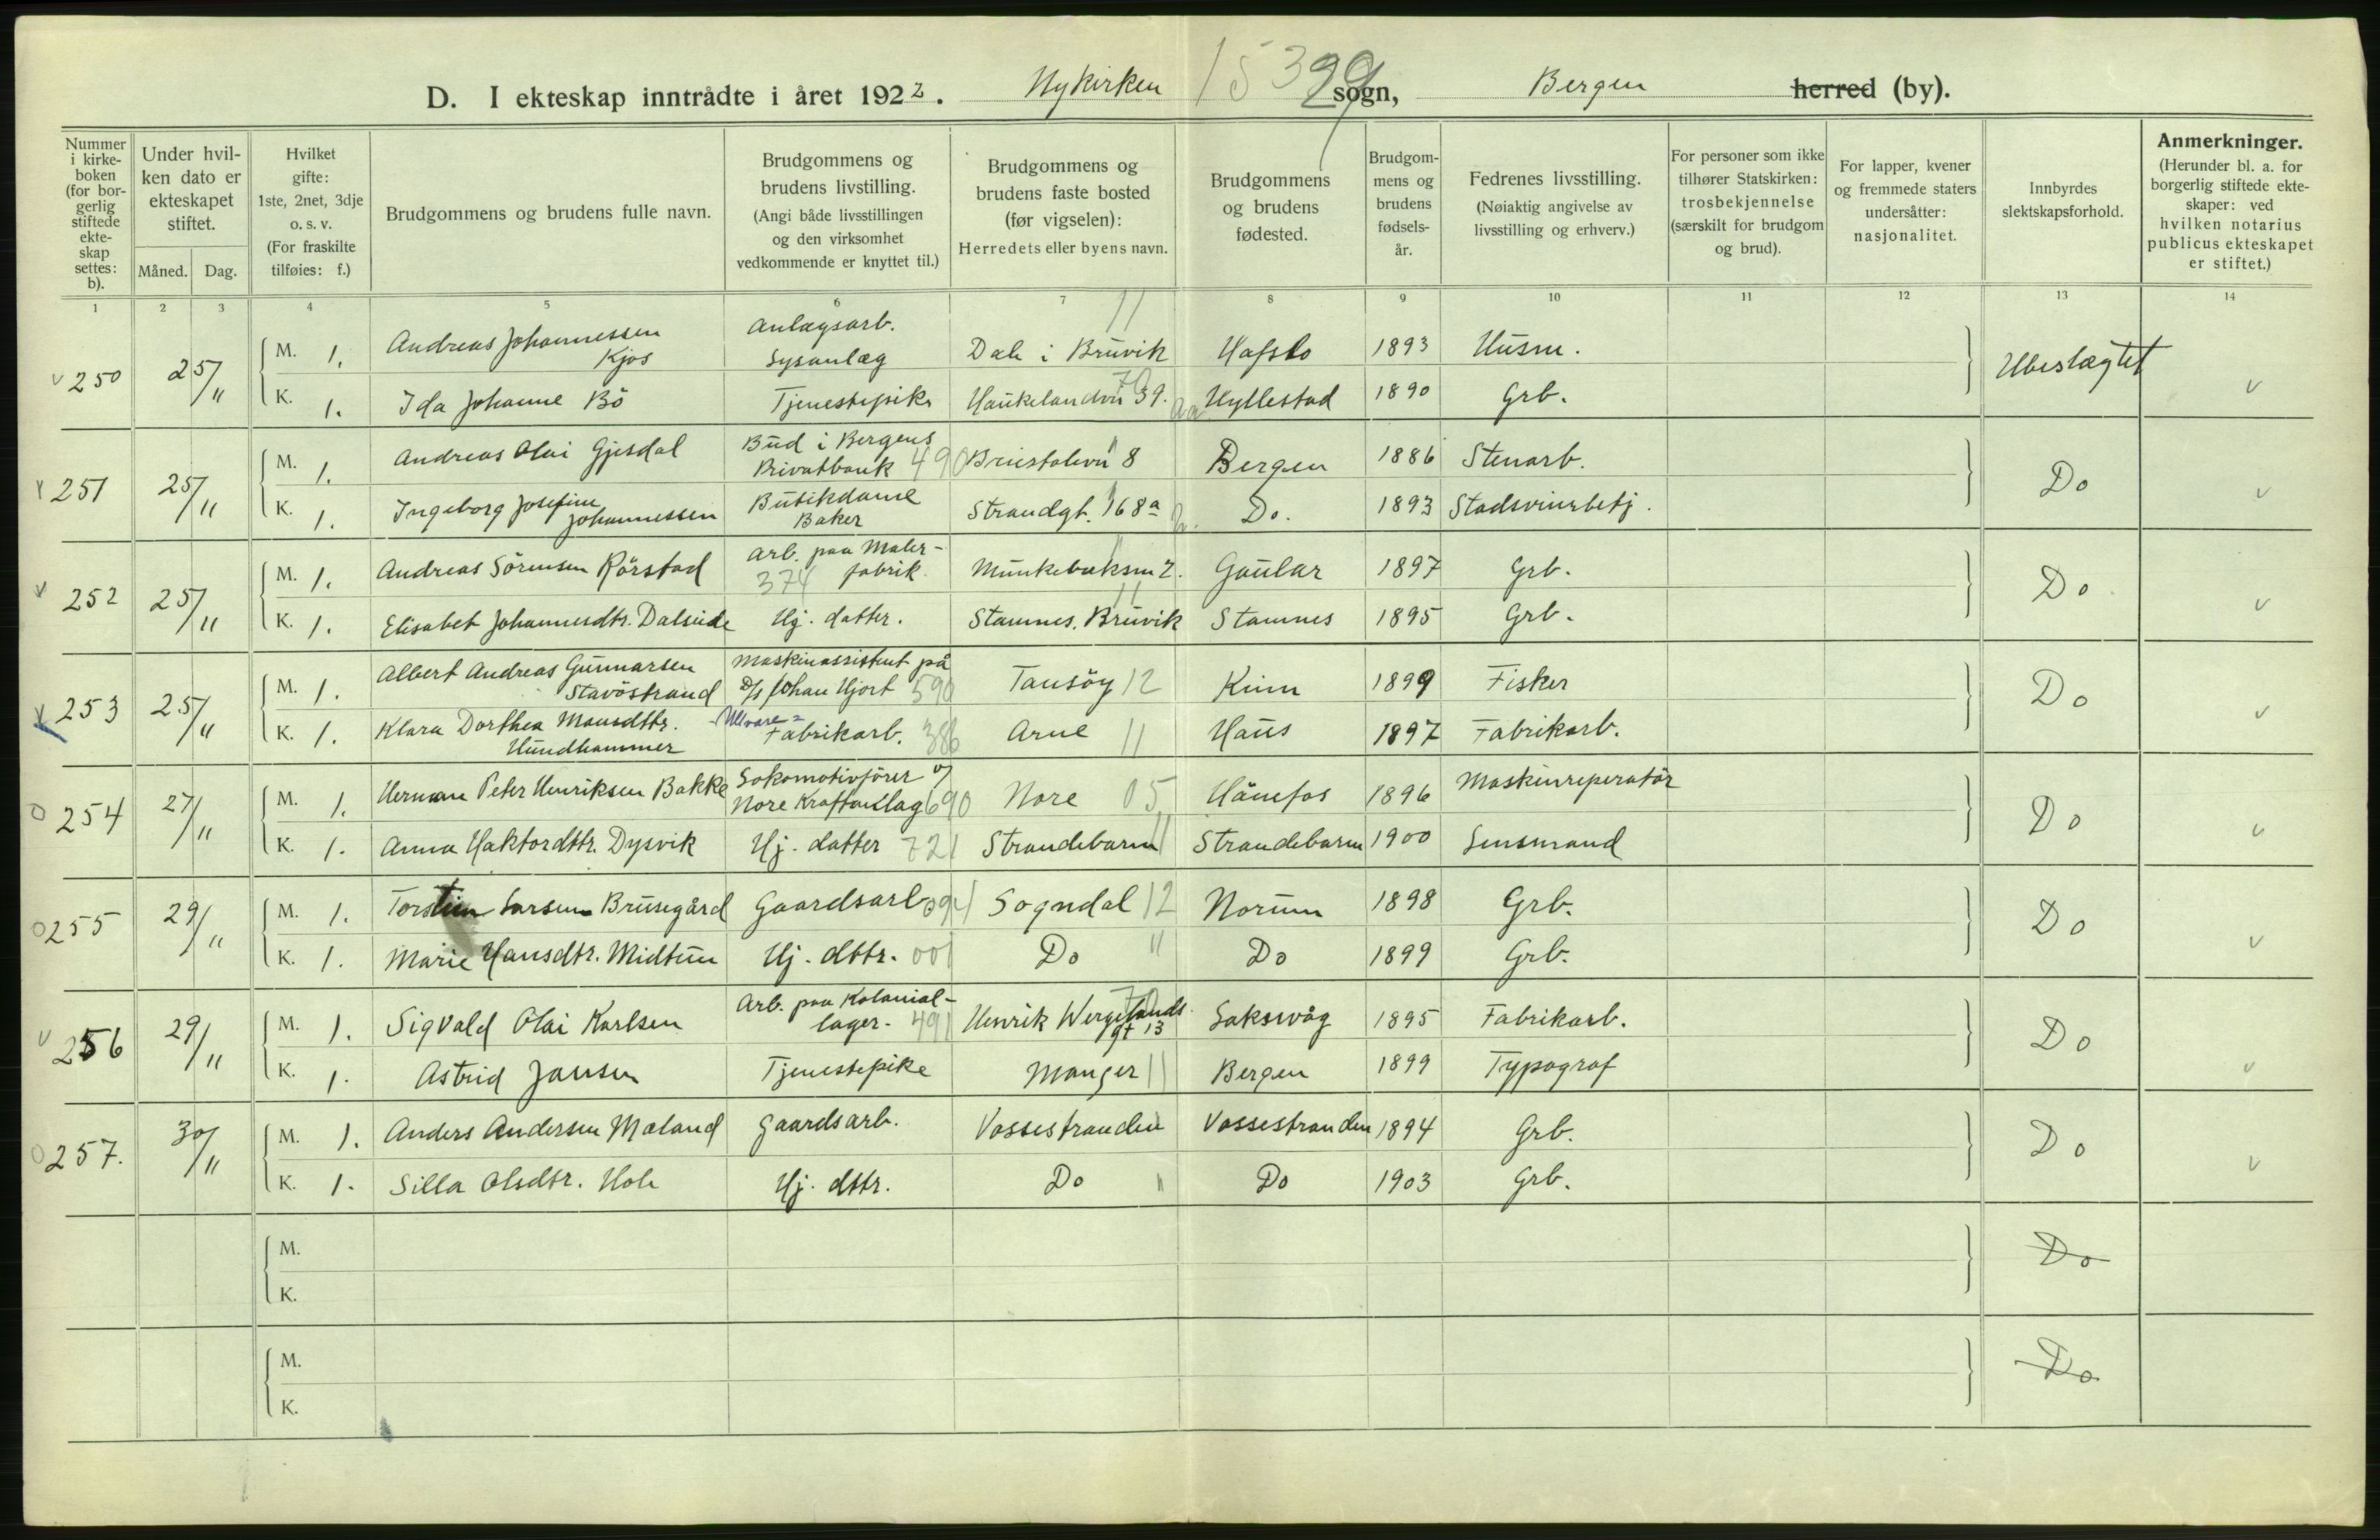 D. I ekteskap inntrådte i året 1922. Nykirken sogn, Bergen herred (by).
15399
Nummer i kirkeboken (for borgerlig stiftede ekteskap settes: b).
Under hvilken dato er ekteskapet stiftet.
Måned. Dag.
Hvilket gifte: 1ste, 2net, 3dje o. s. v. (For fraskilte tilføies: f.)
Brudgommens og brudens fulle navn.
Brudgommens og brudens livstilling. (Angi både livsstillingen og den virksomhet vedkommende er knyttet til.)
Brudgommens og brudens faste bosted (før vigselen): Herredets eller byens navn.
Brudgommens og brudens fødested.
Brudgommens og brudens fødselsår.
Fedrenes livsstilling. (Nøiaktig angivelse av livsstilling og erhverv.)
For personer som ikke tilhører Statskirken: trosbekjennelse (særskilt for brudgom og brud).
For lapper, kvener og fremmede staters undersåtter: nasjonalitet.
Innbyrdes slektskapsforhold.
Anmerkninger. (Herunder bl. a. for borgerlig stiftede ekteskaper: ved hvilken notarius publicus ekteskapet er stiftet.)
1 2 3 4 5 6 7 8 9 10 11 12 13 14
v 250 25/11 M. 1. Andreas Johannessen Kjos Anlagsarb. Lysanlæg Dale i Bruvik 11 Hafslo 1893 Husm. Ubeslægtet
K. 1. Ida Johanne Bö Tjenestepike Haukelandvn 39. Hyllestad 1890 Grb. v
251 25/11 M. 1. Andreas Olai Gjesdal Bud i Bergens Privatbank 490 8 Bergen 1886 Stenarb. Do
K. 1. Ingeborg Josefine Johannessen Butikdame Baker Strandgt. 168a Do. 1893 v
v 252 25/11 M. 1. Andreas Sörensen Rörstad Arb. paa Maler-fabrik 374 2. Gaular 1897 Grb. Do
K. 1. Elisabet Johannesdtr. Dalseide Hj. datter. Stamnes. Bruvik 11 Stamnes 1895 Grb. v
253 25/11 M. 1. Albert Andreas Gunnarsen Stavöstrand Maskinassistent på D/S Johan Hjort 590 Tansöy 12 Kinn 1899 Fisker Do
K. 1. Klara Dorthea Monsdttr. Hundhammer Ullvare- Fabrikarb. 386 Arne 11 Haus 1897 Fabrikarb. v
o 254 27/11 M. 1. Herman Peter Henriksen Bakke Lokomotivförer v/ Nore Kraftanlag 690 Nore 05 Hönefos 1896 Maskinreperatör Do
K. 1. Anna Haktordttr. Dysvik Hj. datter 721 Strandebarm 11 Strandebarm 1900 Lensmand v
o 255 29/11 M. 1. Torstein Larsen Brusegård Gaardsarb. Sogndal 12 Norum 1898 Grb. Do
K. 1. Marie Hansdtr. Midtun Hj. dttr. 001 Do 11 Do 1899 Grb. v
v 256 29/11 M. 1. Sigvald Olai Karlsen Arb. paa Kolonial-lager. 491 Henrik Wergelands gt 13 Laksevåg 1895 Fabrikarb. Do
K. 1. Astrid Jansen Tjenestepike Manger 11 Bergen 1899 Typograf v
o 257. 30/11 M. 1. Anders Andersen Mæland Gaardsarb. Vossestranden Vossestranden 1894 Grb. Do
K. 1. Silla Olsdtr. Hole Hj. dttr. Do 11 Do 1903 Grb. v
M. Do
K.
M. Do
K.